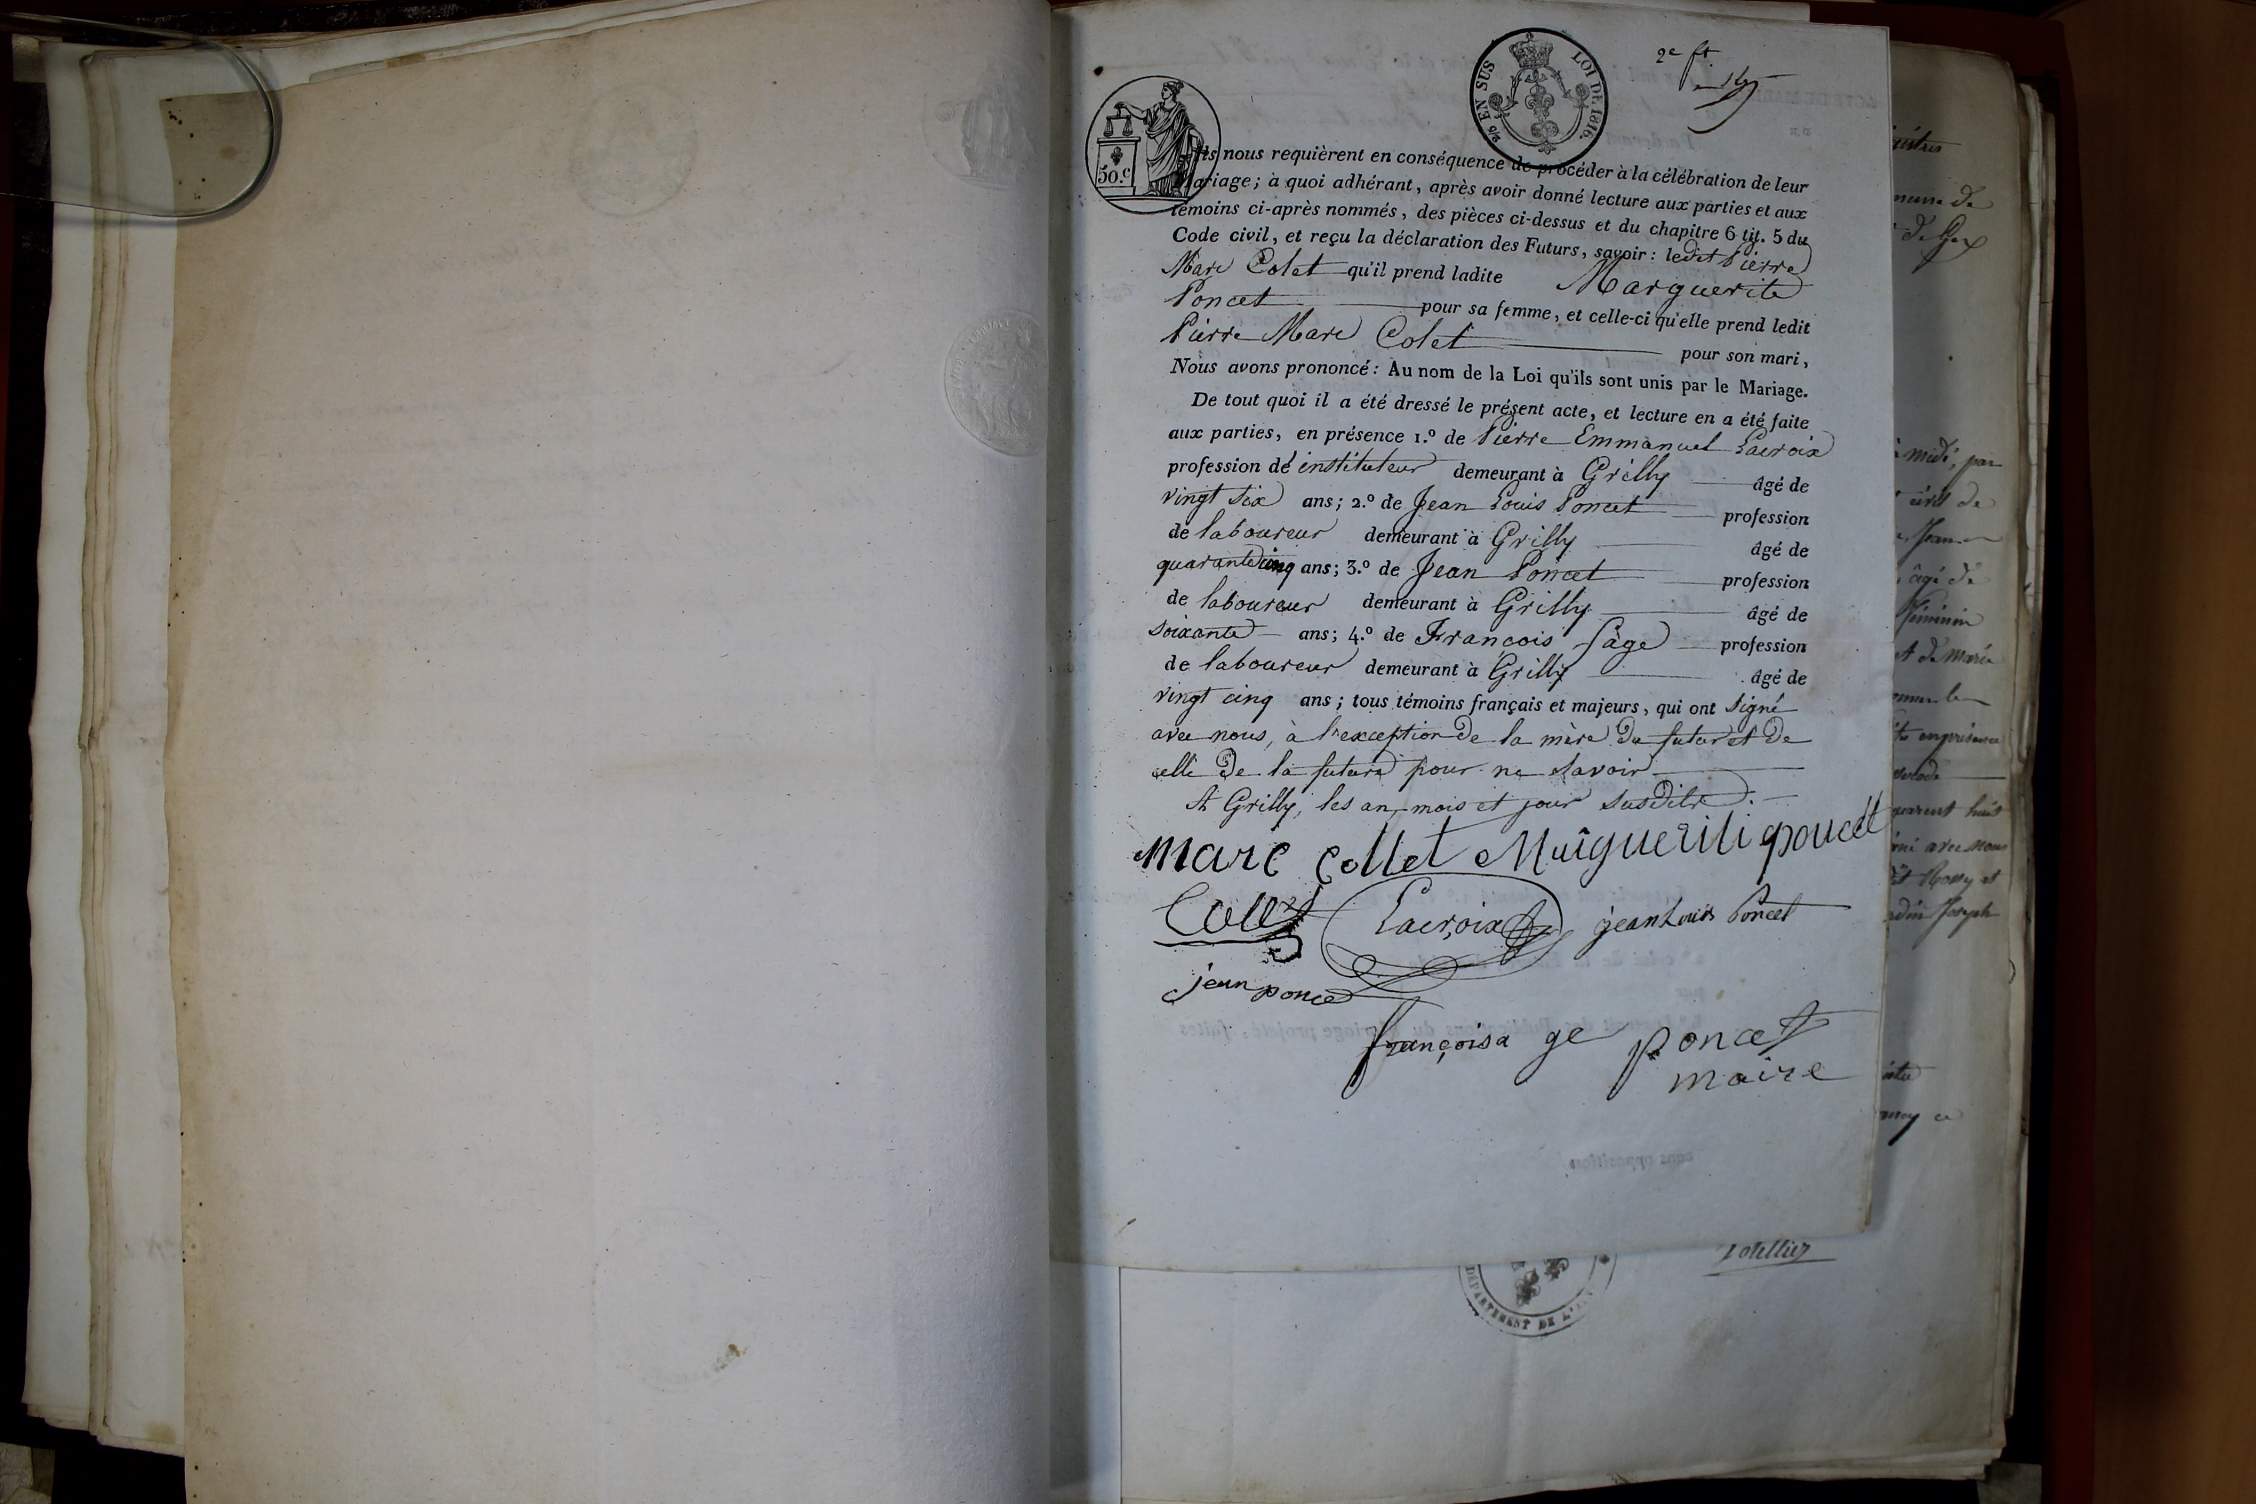 2e ft.
EN SUS LOI DE 1816.
50.c
Ils nous requièrent en conséquence de procéder à la célébration de leur
Mariage; à quoi adhérant, après avoir donné lecture aux parties et aux
témoins ci-après nommés, des pièces ci-dessus et du chapitre 6 tit. 5 du
Code civil, et reçu la déclaration des Futurs, savoir: ledit Pierre
Marc Colet qu'il prend ladite Marguerite
Poncet pour sa femme, et celle-ci qu'elle prend ledit
Pierre Marc Colet pour son mari,
Nous avons prononcé: Au nom de la Loi qu'ils sont unis par le Mariage.
De tout quoi il a été dressé le présent acte, et lecture en a été faite
aux parties, en présence 1.º de Pierre Emmanuel Lacroix
profession de instituteur demeurant à Grilly âgé de
vingt six ans; 2.º de Jean Louis Poncet profession
de laboureur demeurant à Grilly âgé de
quarante cinq ans; 3.º de Jean Poncet profession
de laboureur demeurant à Grilly âgé de
soixante ans; 4.º de François Sâge profession
de laboureur demeurant à Grilly âgé de
vingt cinq ans; tous témoins français et majeurs, qui ont signé
avec nous, à l'exception de la mère du futur et de
celle de la future pour ne savoir
A Grilly, les an, mois et jour susdits.
Marc Collet Marguerite poncet
Colet Lacroix jean Louis Poncet
jean poncet
françois a ge poncet
maire
DÉPARTEMENT DE L'AIN
à midi, par
âgé de
féminin
et de marie
avec nous
Joseph